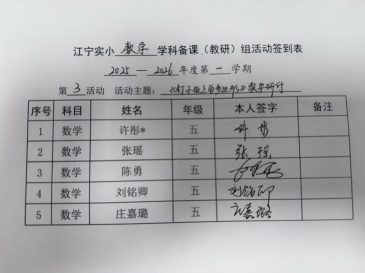 江宁实小 数学 学科备课（教研）组活动签到表
2025—2026年度第一学期
第 3 活动 活动主题：《钉子板上的多边形》教学研讨
序号 科目 姓名 年级 本人签字 备注
1 数学 许彤* 五 许彤
2 数学 张瑶 五 张瑶
3 数学 陈勇 五
4 数学 刘铭卿 五 刘铭卿
5 数学 庄嘉璐 五 庄嘉璐